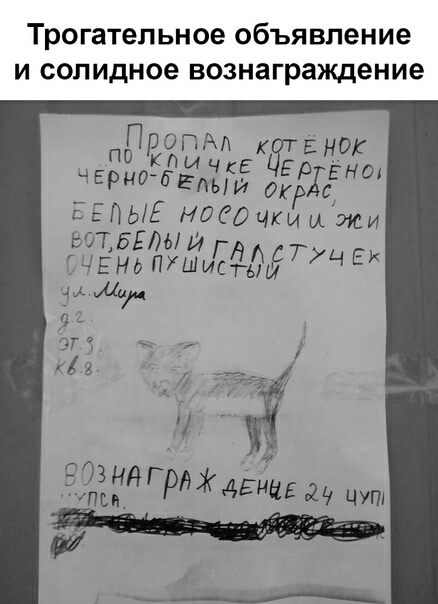 Трогательное объявление
и солидное вознаграждение
ПРОПАЛ КОТЁНОК
ПО КЛИЧКЕ ЧЕРТЁНОК
ЧЁРНО-БЕЛЫЙ ОКРАС,
БЕЛЫЕ НОСОЧКИ И ЖИ
ВОТ, БЕЛЫЙ ГАЛСТУЧЕК
ОЧЕНЬ ПУШИСТЫЙ
ул. Мира
д.2.
эт.3.
кв.8.
ВОЗНАГРАЖДЕНИЕ 24 ЧУПА
ЧУПСА.